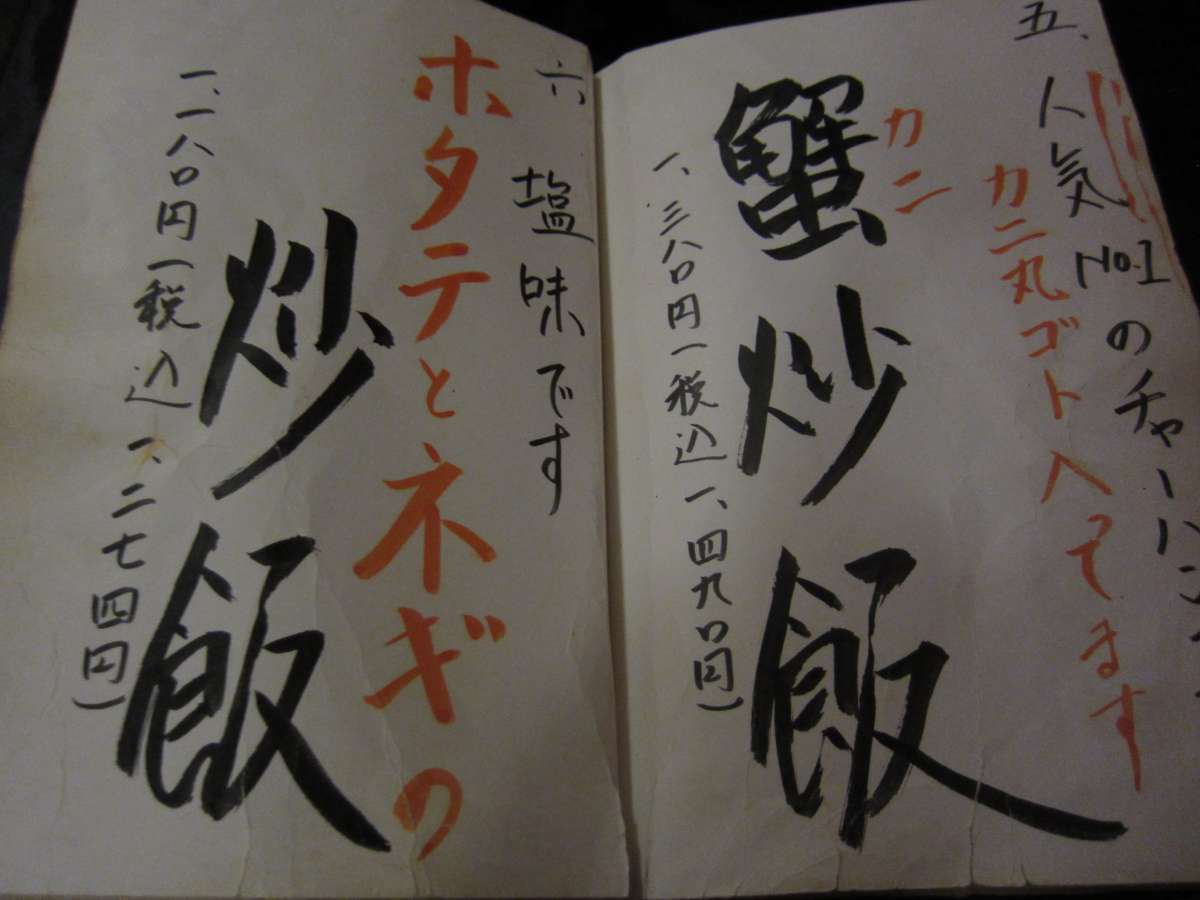 五、
人気No.1のチャーハン
カニ丸ゴト入ってます
カニ
蟹炒飯
一、三八〇円(税込一、四九〇円)
六 塩味です
ホタテとネギの
炒飯
一、一八〇円(税込一、二七四円)